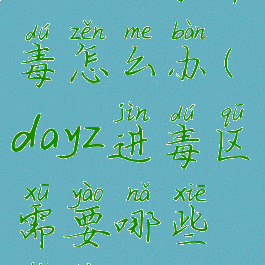 dú zěn me bàn
毒怎么办(
jìn dú qū
dayz进毒区
xū yào nǎ xiē
需要哪些